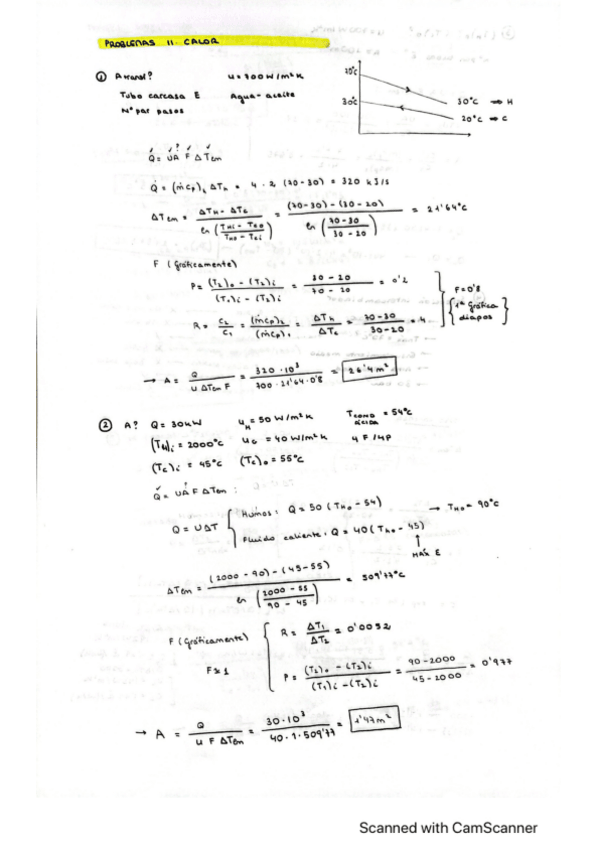 PROBLEMAS 11. CALOR
① A transf? U = 700 W/m²K
Tubo carcasa E Agua-aceite
Nº par pasos
70°C
30°C
30°C → H
20°C → C
Q̇ = UA F ΔTem
Q̇ = (ṁcp)h ΔTh = 4 · 2 (70-30) = 320 kJ/s
ΔTem = ΔTH - ΔTC / ln (THi - TCo / THo - TCi) = (70-30)-(30-20) / ln (70-30 / 30-20) = 21'64°C
F (gráficamente)
P = (T2)o - (T2)i / (T1)i - (T2)i = 30-20 / 70-20 = 0'2
R = C2 / C1 = (ṁcp)2 / (ṁcp)1 = ΔTh / ΔTc = 70-30 / 30-20 = 4
F = 0'8
1ª gráfica
diapos
→ A = Q / U ΔTem F = 320·10³ / 700·21'64·0'8 = 26'4 m²
② A? Q = 30 kW UH = 50 W/m²K Tcond ácida = 54°C
(TH)i = 2000°C UC = 40 W/m²K 4F/4P
(TC)i = 45°C (TC)o = 55°C
Q̇ = UA F ΔTem :
Q = UΔT
Humos: Q = 50 (THo - 54) → THo = 90°C
Fluido caliente: Q = 40 (Tho - 45)
MÁX E
ΔTem = (2000-90)-(45-55) / ln (2000-55 / 90-45) = 509'77°C
F (Gráficamente)
F ≈ 1
R = ΔT1 / ΔT2 = 0'0052
P = (T2)o - (T2)i / (T1)i - (T2)i = 90-2000 / 45-2000 = 0'977
→ A = Q / U F ΔTem = 30·10³ / 40·1·509'77 = 1'47 m²
Scanned with CamScanner